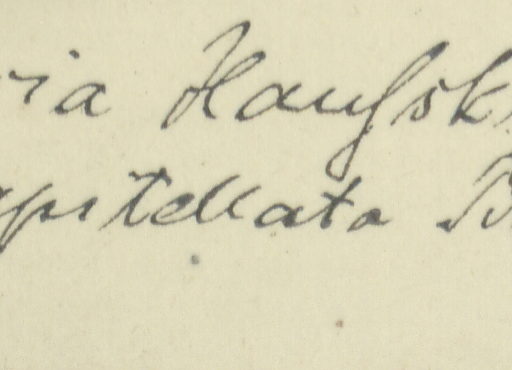 ria Haufsk
apitellata B